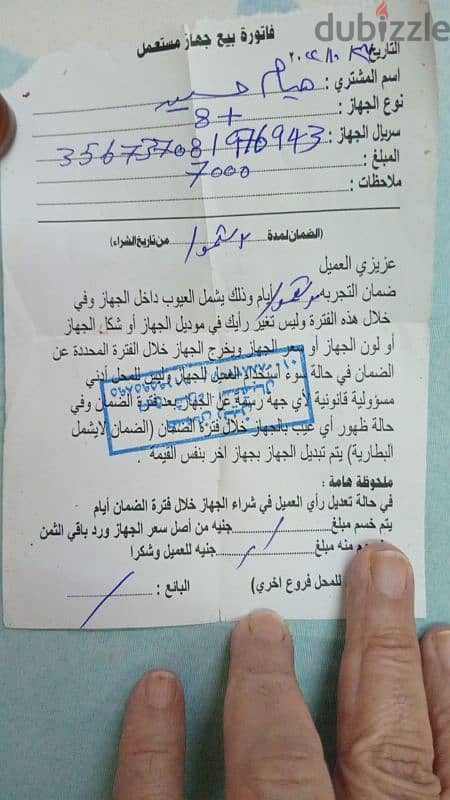 dubizzle
فاتورة بيع جهاز مستعمل
التاريخ
اسم المشتري : هيام
نوع الجهاز : 8+
سريال الجهاز : 356737081976943
المبلغ : 7000
ملاحظات :
(الضمان لمدة من تاريخ الشراء)
عزيزي العميل
ضمان التجربه أيام وذلك يشمل العيوب داخل الجهاز وفي
خلال هذه الفترة وليس تغير رأيك في موديل الجهاز أو شكل الجهاز
أو لون الجهاز أو سعر الجهاز ويخرج الجهاز خلال الفترة المحددة عن
الضمان في حالة سوء استخدام العميل الجهاز وليس للمحل أدني
مسؤولية قانونية لأي جهة رسمية عن الجهاز بعد فترة الضمان وفي
حالة ظهور أي عيب بالجهاز خلال فترة الضمان (الضمان لايشمل
البطارية) يتم تبديل الجهاز بجهاز آخر بنفس القيمة .
ملحوظة هامة :
في حالة تعديل رأي العميل في شراء الجهاز خلال فترة الضمان أيام
يتم خسم مبلغ جنيه من أصل سعر الجهاز ورد باقي الثمن
منه مبلغ جنيه للعميل وشكرا
للمحل فروع اخري)
البائع :